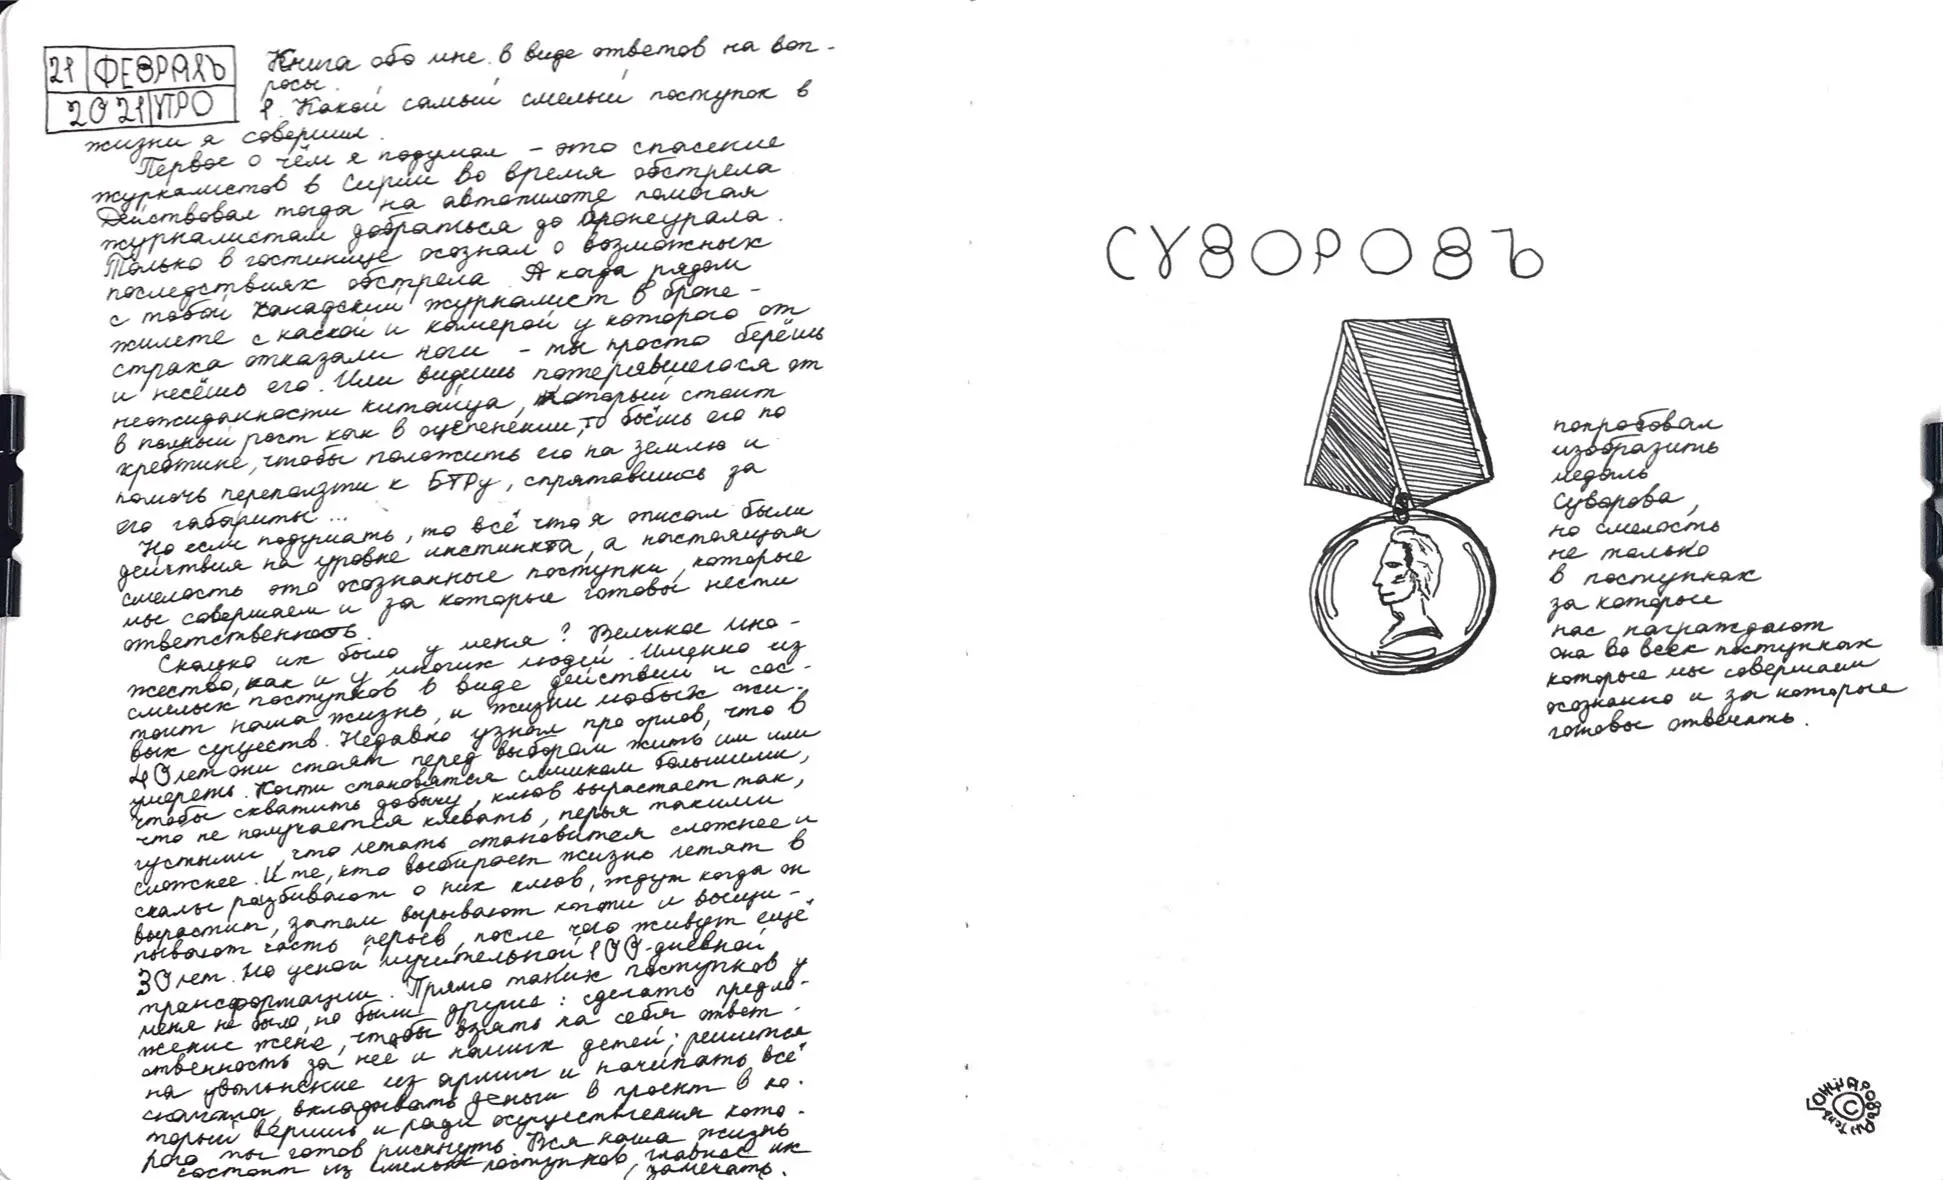 21 ФЕВРАЛЬ
2021 УТРО
Книга обо мне в виде ответов на воп-
росы.
1. Какой самый смелый поступок в
жизни я совершил.
Первое о чём я подумал – это спасение
журналистов в Сирии во время обстрела
Действовал тогда на автопилоте помогая
журналистам добраться до бронеурала.
Только в гостинице осознал о возможных
последствиях обстрела. А когда рядом
с тобой канадский журналист в броне-
жилете с каской и камерой у которого от
страха отказали ноги – ты просто берёшь
и несёшь его. Или видишь потерявшегося от
неожиданности китайца, который стоит
в полный рост как в оцепенении, то бьёшь его по
креотине, чтобы положить его на землю и
помочь переползти к БТРу, спрятавшись за
его габариты...
Но если подумать, то всё что я описал были
действия на уровне инстинкта, а настоящая
смелость это осознанные поступки, которые
мы совершаем и за которые готовы нести
ответственность.
Сколько их было у меня? Великое мно-
жество, как и у многих людей. Именно из
смелых поступков в виде действий и сос-
тоит наша жизнь, и жизни любых жи-
вых существ. Недавно узнал про орлов, что в
40 лет они стоят перед выбором жить им или
умереть. Когти становятся слишком большими,
чтобы схватить добычу, клюв вырастает так,
что не получается клевать, перья такими
густыми, что летать становится сложнее и
сложнее. И те, кто выбирает жизнь летят в
скалы разбивают о них клюв, ждут когда он
вырастит, затем вырывают когти и выщи-
пывают часть перьев, после чего живут ещё
30 лет. Но ценой мучительной 100-дневной
трансформации. Прямо таких поступков у
меня не было, но были другие: сделать предло-
жение жене, чтобы взять на себя ответ-
ственность за неё и наших детей; решиться
на увольнение из армии и начинать всё
сначала, вкладывать деньги в проект в ко-
торый веришь и ради осуществления кото-
рого ты готов рискнуть. Вся наша жизнь
состоит из смелых поступков, главное их
замечать.
СУВОРОВЪ
попробовал
изобразить
медаль
Суворова,
но смелость
не только
в поступках
за которые
нас награждают
она во всех поступках
которые мы совершаем
осознанно и за которые
готовы отвечать.